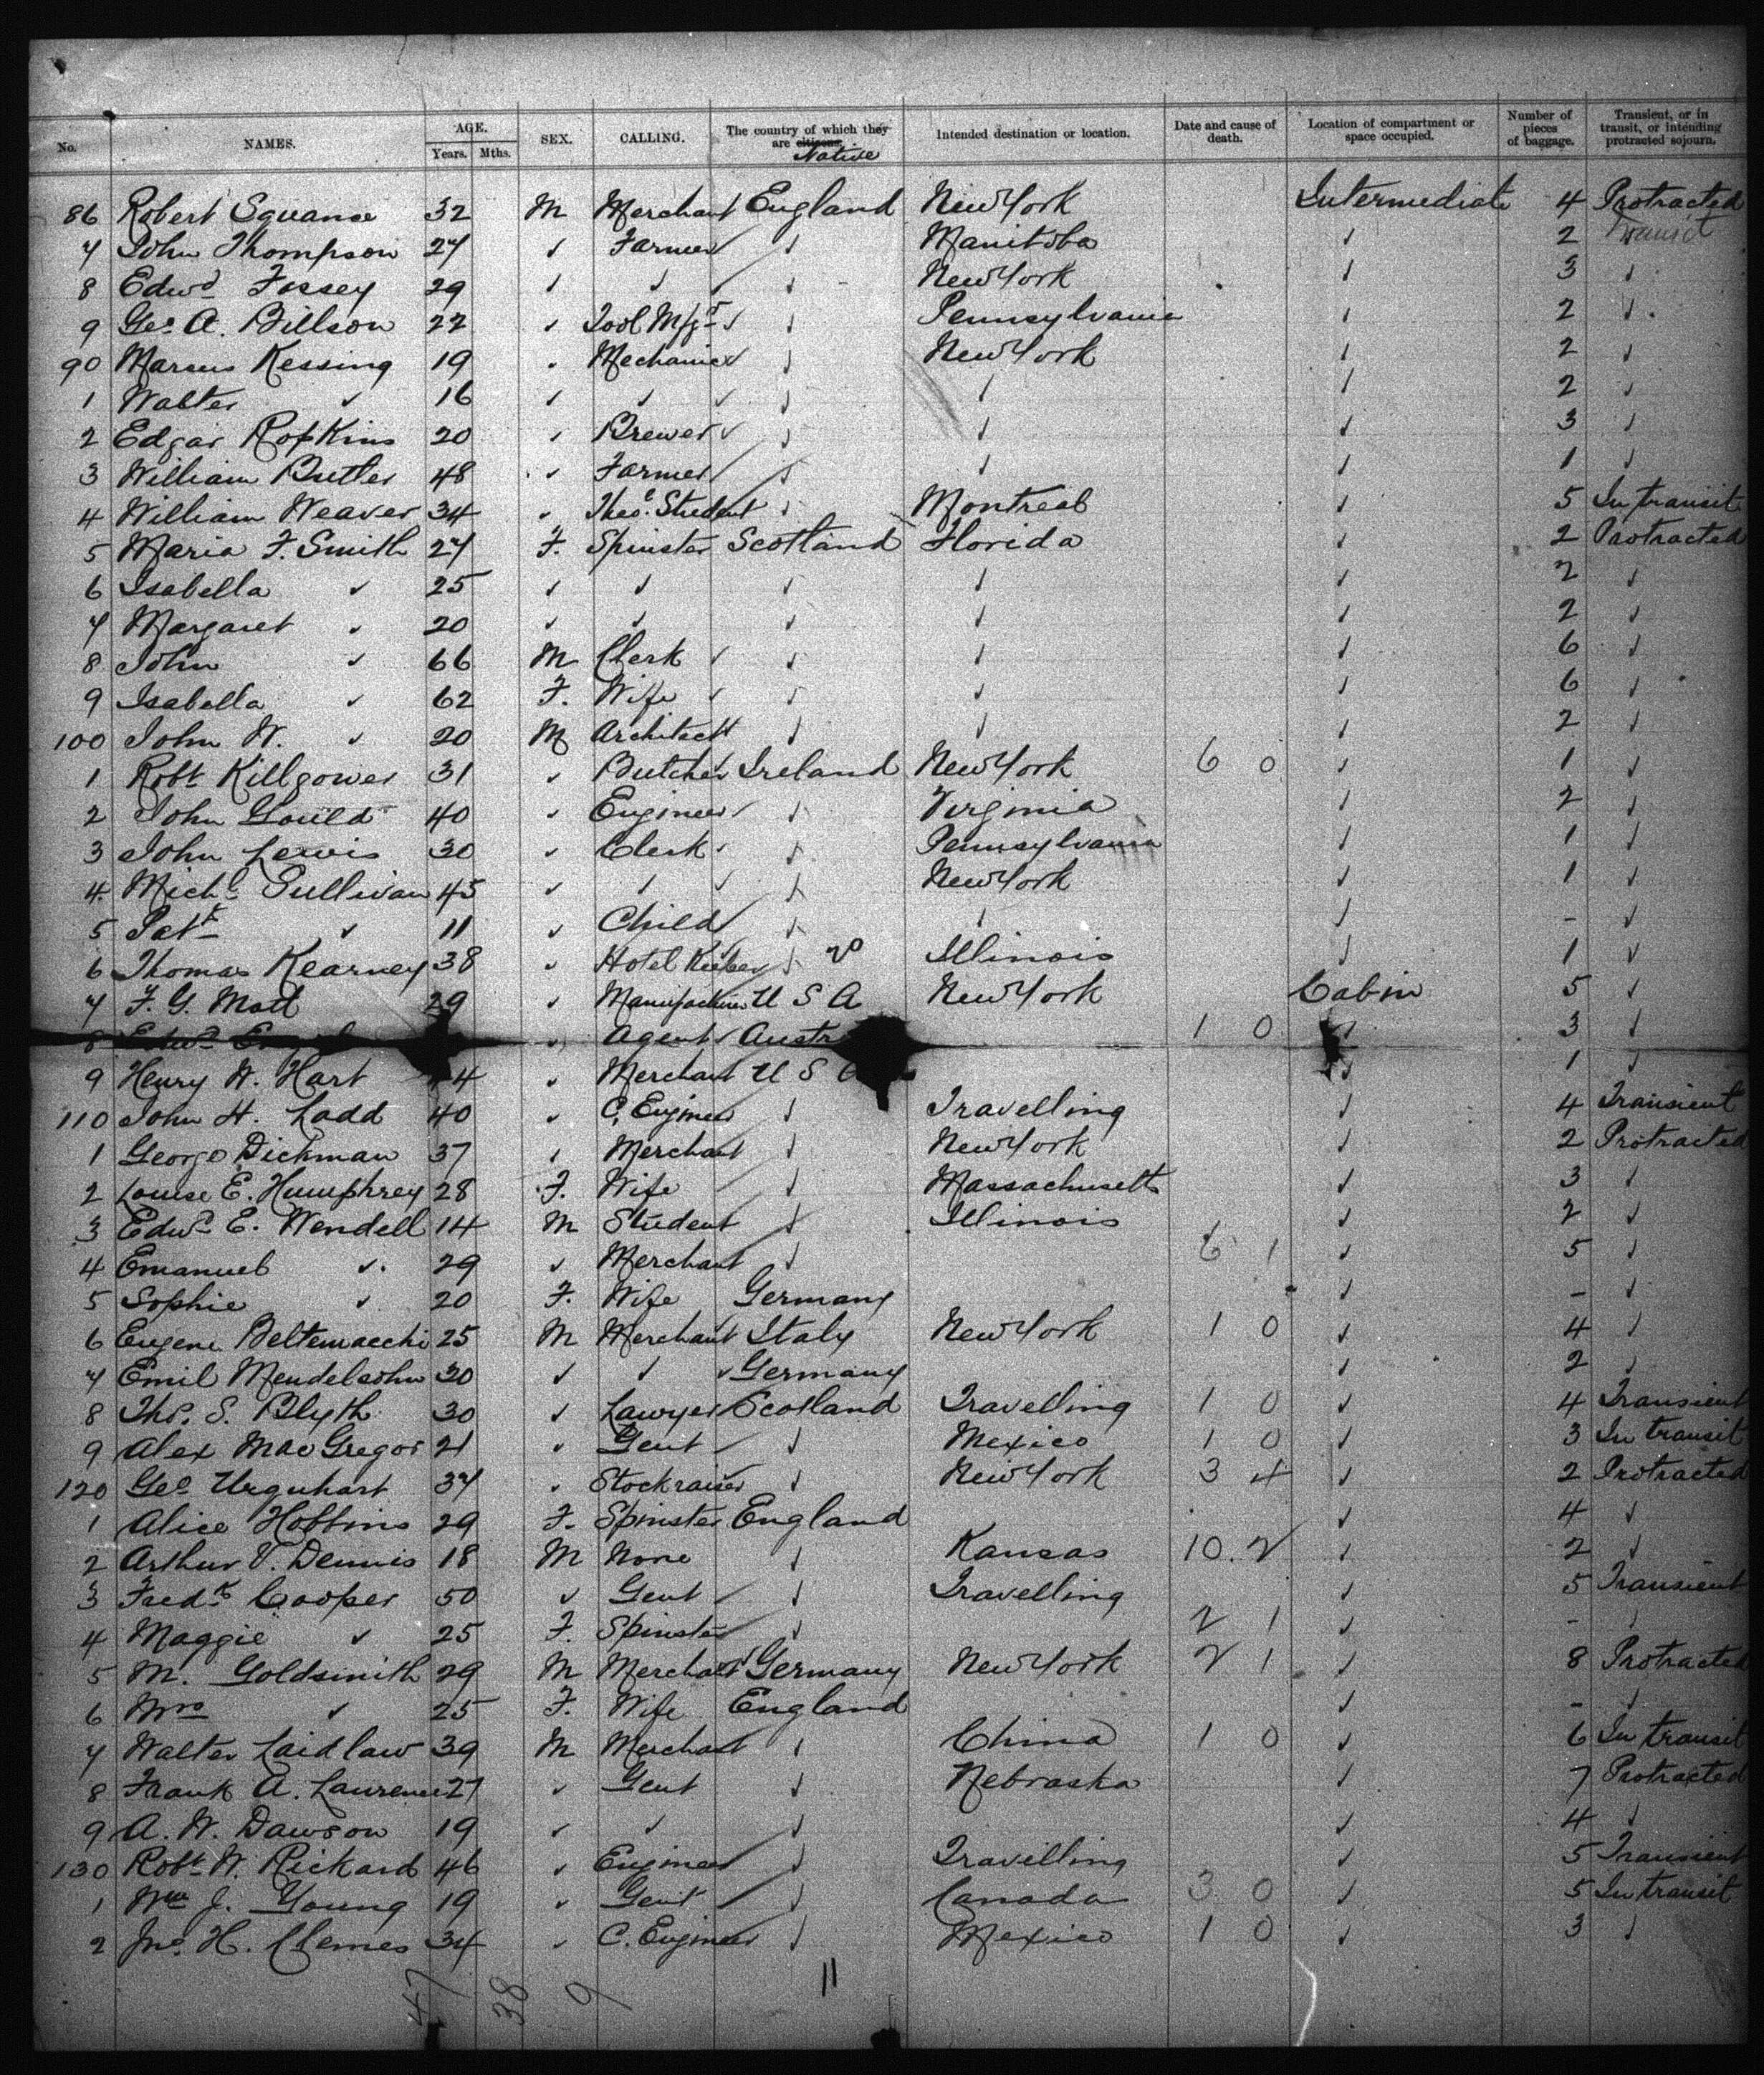 No. NAMES. AGE. Years. Mths. SEX. CALLING. The country of which they are citizens. Native Intended destination or location. Date and cause of death. Location of compartment or space occupied. Number of pieces of baggage. Transient, or in transit, or intending protracted sojourn.
86 Robert Squance 32 M Merchant England New York Intermediate 4 Protracted
7 John Thompson 27 ✓ Farmer ✓ Manitoba ✓ 2 Transit
8 Edwd Fossey 29 ✓ ✓ ✓ New York ✓ 3 ✓
9 Geo A. Billson 22 ✓ Tool Mfgr ✓ Pennsylvania ✓ 2 ✓
90 Marcus Kessing 19 ✓ Mechanic ✓ New York ✓ 2 ✓
1 Walter ✓ 16 ✓ ✓ ✓ ✓ ✓ 2 ✓
2 Edgar Hopkins 20 ✓ Brewer ✓ ✓ ✓ 3 ✓
3 William Butler 48 ✓ Farmer ✓ ✓ ✓ 1 ✓
4 William Weaver 34 ✓ Theo. Student ✓ Montreal ✓ 5 In transit
5 Maria F. Smith 27 F. Spinster Scotland Florida ✓ 2 Protracted
6 Isabella ✓ 25 ✓ ✓ ✓ ✓ ✓ 2 ✓
7 Margaret ✓ 20 ✓ ✓ ✓ ✓ ✓ 2 ✓
8 John ✓ 66 M Clerk ✓ ✓ ✓ 6 ✓
9 Isabella ✓ 62 F. Wife ✓ ✓ ✓ 6 ✓
100 John W. ✓ 20 M Architect ✓ ✓ ✓ 2 ✓
1 Robt Killgower 31 ✓ Butcher Ireland New York 6 0 ✓ 1 ✓
2 John Gould 40 ✓ Engineer ✓ Virginia ✓ 2 ✓
3 John Lewis 30 ✓ Clerk ✓ Pennsylvania ✓ 1 ✓
4 Michl Sullivan 45 ✓ ✓ ✓ New York ✓ 1 ✓
5 Patk ✓ 11 ✓ Child ✓ ✓ ✓ - ✓
6 Thomas Kearney 38 ✓ Hotel Keeper ✓ 20 Illinois ✓ 1 ✓
7 F. G. Mott 29 ✓ Manufacturer U S A New York Cabin 5 ✓
8 Edwd ✓ Agent 1 0 ✓ 3 ✓
9 Henry W. Hart ✓ Merchant U S ✓ 1 ✓
110 John H. Ladd 40 ✓ C. Engineer ✓ Travelling ✓ 4 Transient
1 George Dickman 37 ✓ Merchant ✓ New York ✓ 2 Protracted
2 Louise E. Humphrey 28 F. Wife ✓ Massachusetts ✓ 3 ✓
3 Edwd E. Wendell 14 M Student ✓ Illinois ✓ 2 ✓
4 Emanuel ✓ 29 ✓ Merchant ✓ 6 1 ✓ 5 ✓
5 Sophie ✓ 20 F. Wife Germany ✓ - ✓
6 Eugene Beltemacchi 25 M Merchant Italy New York 1 0 ✓ 4 ✓
7 Emil Mendelsohn 30 ✓ ✓ Germany ✓ 2 ✓
8 Ths. S. Blyth 30 ✓ Lawyer Scotland Travelling 1 0 ✓ 4 Transient
9 Alex MacGregor 21 ✓ Gent ✓ Mexico 1 0 ✓ 3 In transit
120 Geo Urquhart 37 ✓ Stockraiser ✓ New York 3 4 ✓ 2 Protracted
1 Alice Hobbins 29 F. Spinster England ✓ 4 ✓
2 Arthur V. Dennis 18 M None ✓ Kansas 10. 2 ✓ 2 ✓
3 Fredk Cooper 50 ✓ Gent ✓ Travelling ✓ 5 Transient
4 Maggie ✓ 25 F. Spinster ✓ 2 1 ✓ - ✓
5 M. Goldsmith 29 M Merchant Germany New York 2 1 ✓ 8 Protracted
6 Mrs ✓ 25 F. Wife England ✓ - ✓
7 Walter Laidlaw 39 M Merchant ✓ China 1 0 ✓ 6 In transit
8 Frank A. Lawrence 27 ✓ Gent ✓ Nebraska ✓ 7 Protracted
9 A. W. Dawson 19 ✓ ✓ ✓ ✓ 4 ✓
130 Robt W. Rickard 46 ✓ Engineer ✓ Travelling ✓ 5 Transient
1 Wm J. Young 19 ✓ Gent ✓ Canada 3 0 ✓ 5 In transit
2 Jno. H. Clemes 34 ✓ C. Engineer ✓ Mexico 1 0 ✓ 3 ✓
47 38 9 11